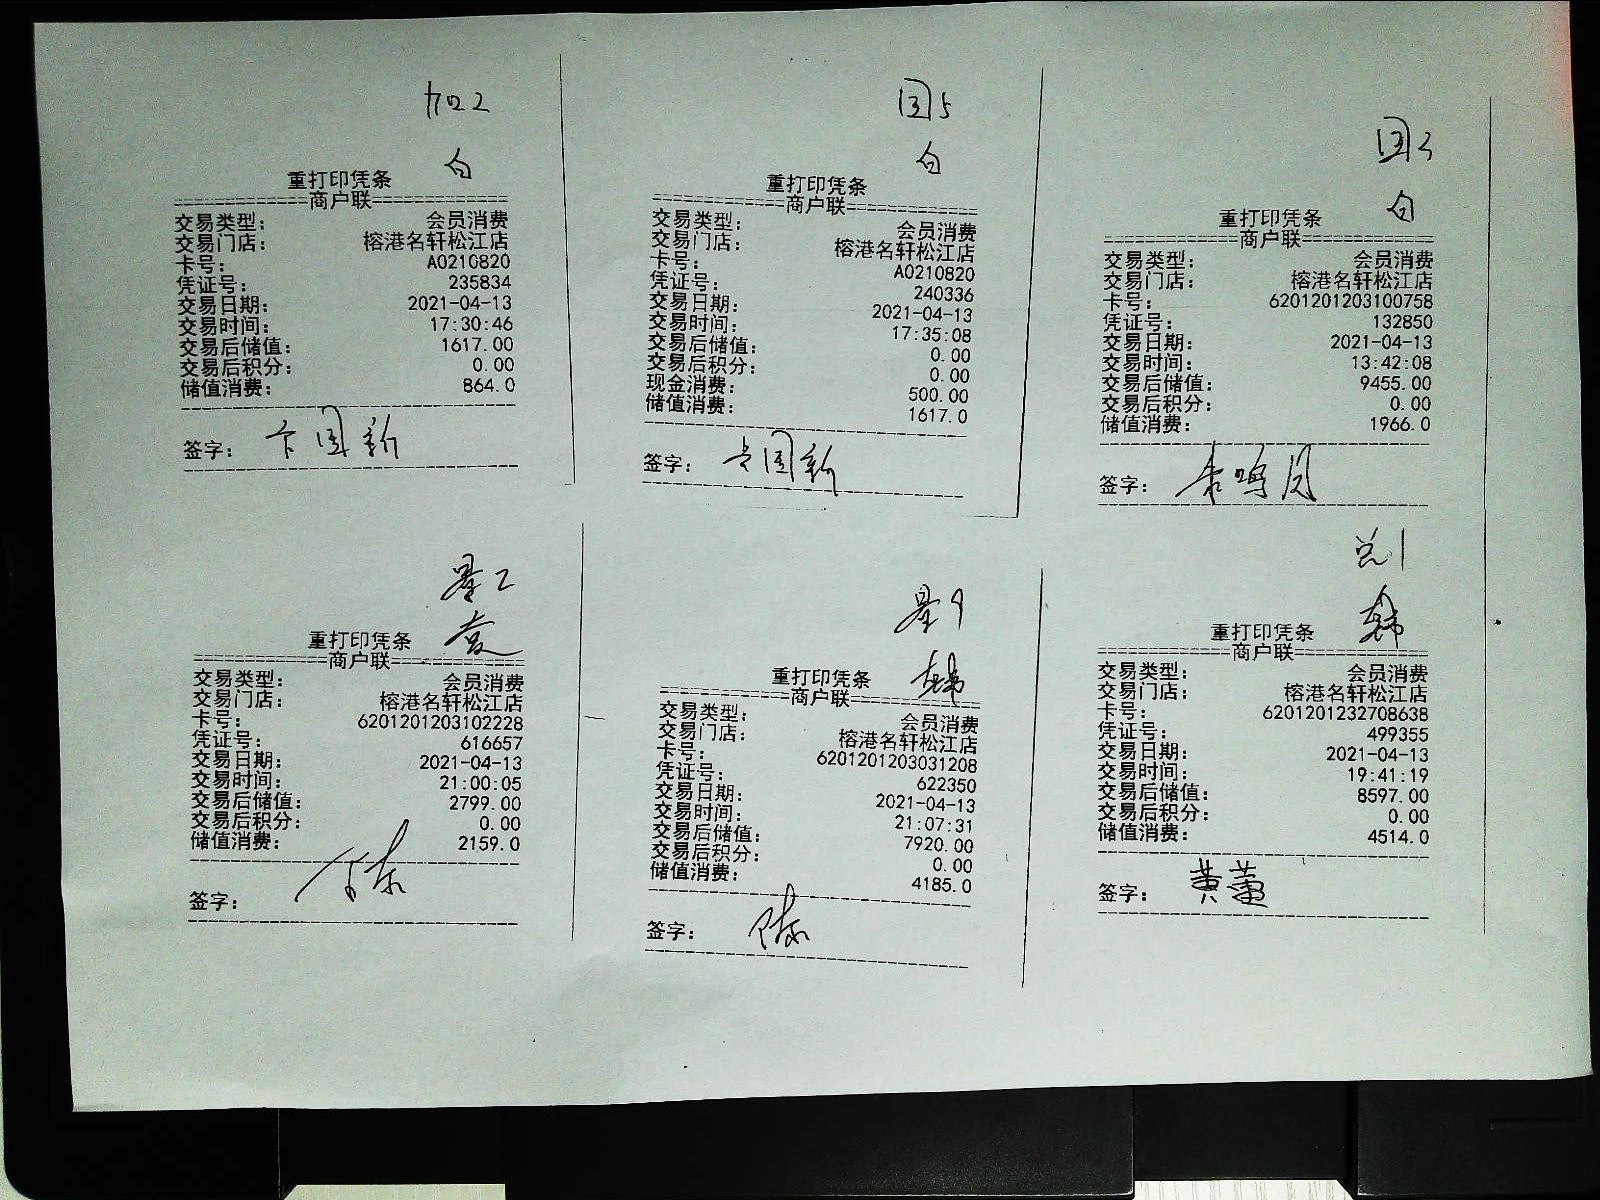 加2
白
重打印凭条
=============商户联=============
交易类型： 会员消费
交易门店： 榕港名轩松江店
卡号： A0210820
凭证号： 235834
交易日期： 2021-04-13
交易时间： 17:30:46
交易后储值： 1617.00
交易后积分： 0.00
储值消费： 864.0
签字： 卞国新
国5
白
重打印凭条
=============商户联=============
交易类型： 会员消费
交易门店： 榕港名轩松江店
卡号： A0210820
凭证号： 240336
交易日期： 2021-04-13
交易时间： 17:35:08
交易后储值： 0.00
交易后积分： 0.00
现金消费： 500.00
储值消费： 1617.0
签字： 卞国新
国3
白
重打印凭条
=============商户联=============
交易类型： 会员消费
交易门店： 榕港名轩松江店
卡号： 6201201203100758
凭证号： 132850
交易日期： 2021-04-13
交易时间： 13:42:08
交易后储值： 9455.00
交易后积分： 0.00
储值消费： 1966.0
签字：
星2
重打印凭条
=============商户联=============
交易类型： 会员消费
交易门店： 榕港名轩松江店
卡号： 6201201203102228
凭证号： 616657
交易日期： 2021-04-13
交易时间： 21:00:05
交易后储值： 2799.00
交易后积分： 0.00
储值消费： 2159.0
签字：
星9
韩
重打印凭条
=============商户联=============
交易类型： 会员消费
交易门店： 榕港名轩松江店
卡号： 6201201203031208
凭证号： 622350
交易日期： 2021-04-13
交易时间： 21:07:31
交易后储值： 7920.00
交易后积分： 0.00
储值消费： 4185.0
签字：
总1
韩
重打印凭条
=============商户联=============
交易类型： 会员消费
交易门店： 榕港名轩松江店
卡号： 6201201232708638
凭证号： 499355
交易日期： 2021-04-13
交易时间： 19:41:19
交易后储值： 8597.00
交易后积分： 0.00
储值消费： 4514.0
签字： 黄蕾